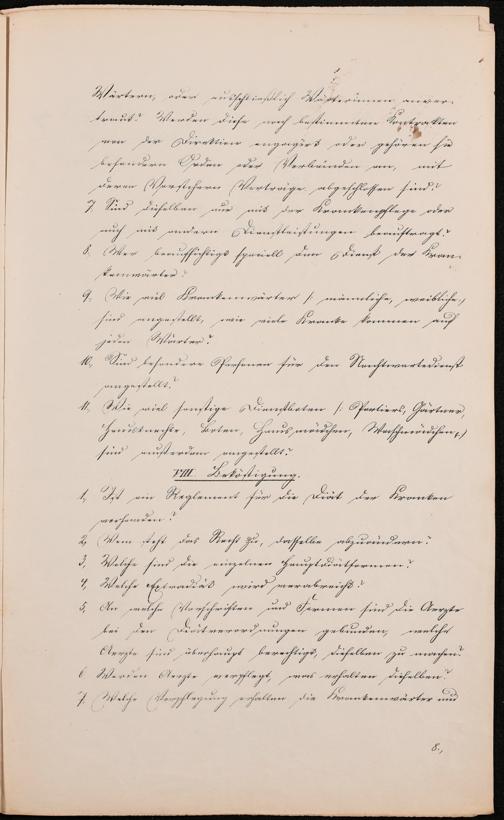 Wärtern, oder ausschließlich Wärterinnen anver-
traut? Werden diese nach bestimmten Kontrakten
von der Direktion engagirt oder gehören sie
besondern Orden oder Verbänden an, mit
deren Vorstehern Verträge abgeschlossen sind?
7, Sind dieselben nur mit der Krankenpflege oder
auch mit andern Dienstleistungen beauftragt?
8, Wer beaufsichtigt speciell den Dienst der Kran-
kenwärter?
9, Wie viel Krankenwärter /: männliche, weibliche,/
sind angestellt, wie viele Kranke kommen auf
jeden Wärter?
10, Sind besondere Personen für den Nachtwartedienst
angestellt?
11, Wie viel sonstige Dienstboten /: Portiers, Gärtner,
Hausknechte, Boten, Hausmädchen, Waschmädchen :/
sind außerdem angestellt?
VIII. Beköstigung.
1, Ist ein Reglement für die Diät der Kranken
vorhanden?
2, Wem steht das Recht zu, dasselbe abzuändern?
3, Welche sind die einzelnen Hauptdiätformen?
4, Welche Extradiät wird verabreicht?
5, An welche Vorschriften und Formen sind die Aerzte
bei den Diätverordnungen gebunden, welche
Aerzte sind überhaupt berechtigt, dieselben zu machen?
6 Werden Aerzte verpflegt, was erhalten dieselben?
7, Welche Verpflegung erhalten die Krankenwärter und
8.,